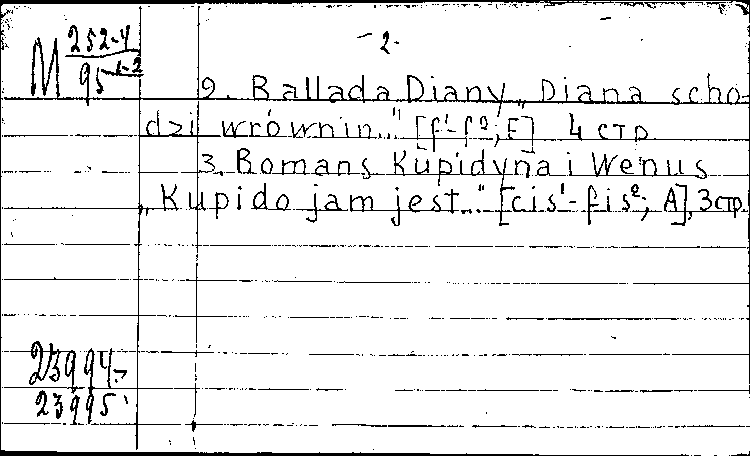 M 252-4
95 1-2
-2-
2. Ballada Diany „Diana scho-
dzi wrównin..." [f¹-f²; F] 4 стр
3. Romans Kupidyna i Wenus
„Kupido jam jest..." [cis¹-fis²; A], 3 стр.
23994-
23995